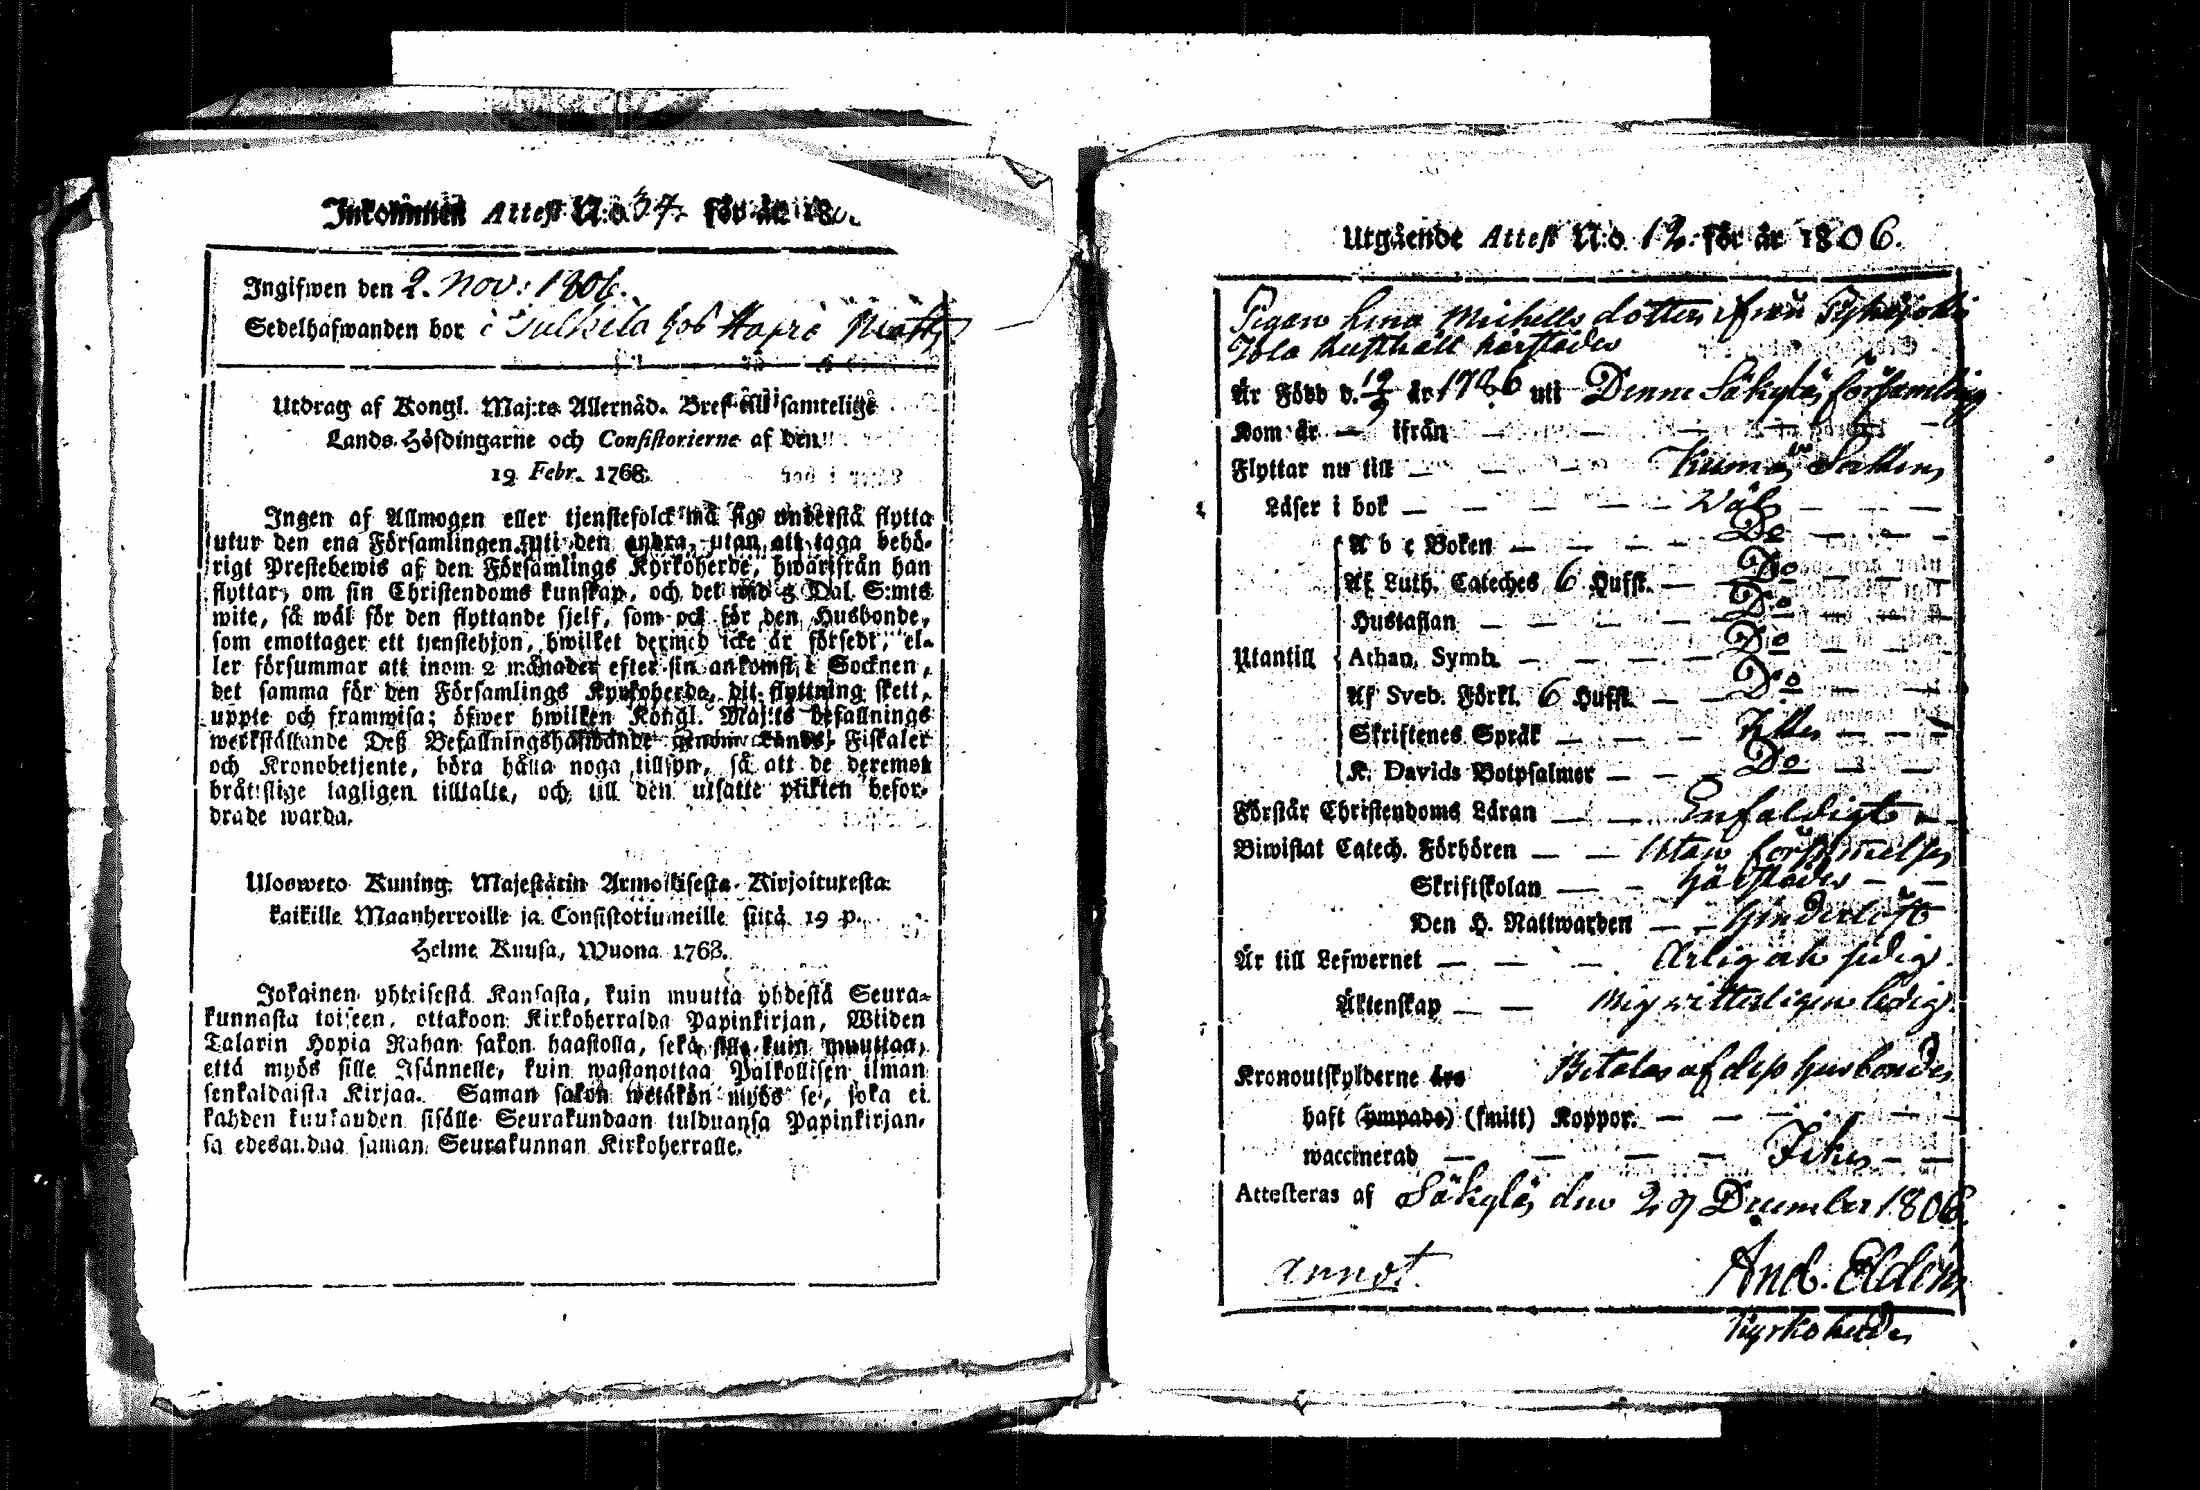 Inkommen Attest N:o 37. för år 180
Ingifwen den 2. Nov: 1806.
Sedelhafwanden bor i Sulkila hos Hapri Matts
Utdrag af Kongl. Maj:ts Allernåd. Bref till samtelige
Lands-Höfdingarne och Consistorierne af den
19 Febr. 1768.
Ingen af Allmogen eller tjenstefolck må sig understå flytta
utur den ena Församlingen uti den andra, utan att taga behö-
rigt Prestebewis af den Församlings Kyrkoherde, hwarifrån han
flyttar, om sin Christendoms kunskap, och det wid 5 Dal. S:mts
wite, så wäl för den flyttande sjelf, som ock för den Husbonde,
som emottager ett tjenstehjon, hwilket dermed icke är försedt, el-
ler försummar att inom 2 månader efter sin ankomst i Socknen,
det samma för den Församlings Kyrkoherde, dit flyttning skett,
uppte och framwisa; öfwer hwilken Kongl. Maj:ts befallnings
werkställande Deß Befallningshafwande genom Lands-Fiskaler
och Kronobetjente, böra hålla noga tillsyn, så att de deremot
bråtslige lagligen tilltalte, och till den utsatte plikten befor-
drade warda.
Uloswero Kuning. Majestätin Armollisesta Kirjoituxesta
kaikille Maanherroille ja Consistoriumeille siitä 19 p.
Helme Kuusa, Wuona 1768.
Jokainen yhteisestä Kansasta, kuin muutta yhdestä Seura-
kunnasta toiseen, ottakoon Kirkoherralda Papinkirjan, Wiiden
Talarin Hopia Rahan sakon haastolla, sekä sille kuin muuttaa,
että myös sille Isännelle, kuin wastanottaa Palkollisen ilman
senkaldaista Kirjaa. Saman sakon wetäkön myös se, joka ei
kahden kuukauden sisälle Seurakundaan tulduansa Papinkirjan-
sa edesanda saman Seurakunnan Kirkoherralle.
Utgående Attest N:o 12. för år 1806.
Pigan Lina Michells dotter ifrån Pyhäjoki
Isla Rusthåll härstädes
Är Född d. 12/9 år 1786 uti Denne Säkylä församling
Kom år — ifrån — — — — —
Flyttar nu till — — — Kumo Sochn
Läser i bok — — — — Wäl — — —
A b c Boken — — — — Do — — —
Af Luth. Cateches 6 Hufst. — Do — — —
Hustaflan — — — — Do — — —
Utantill Athan. Symb. — — — — Do — — —
Af Sveb. Förkl. 6 Hufst. — — Do — — —
Skriftenes Språk — — — — — —
K. Davids Botpsalmer — — Do — — —
Förstår Christendoms Läran — — Enfaldigt —
Biwistat Catech. Förhören — — Utan försummelse
Skriftskolan — — härstädes — —
Den H. Nattwarden — — hinderlöst
Är till Lefwernet — — — Ärlig och sedig.
Äktenskap — — Mig witterligen ledig.
Kronoutskylderne års Betalas af deß husbonde
haft (ympade) (smitt) Koppor. — — — — —
waccinerad — — — — Icke — —
Attesteras af Säkylä den 29 December 1806.
Annot.
And. Eldén
Kyrkoherde